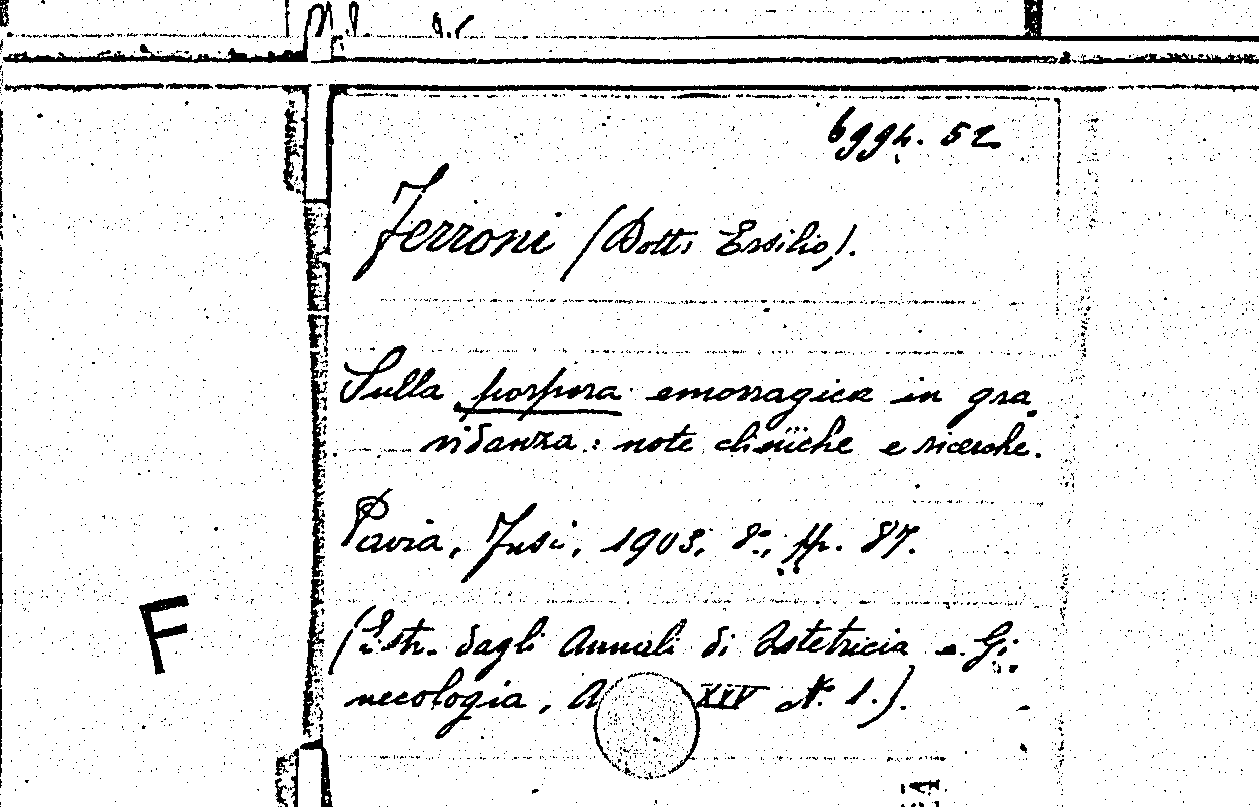 6ggh. 52
Ferroni (Dott. Ersilio).
Sulla porpora emorragica in gra
vidanza: note cliniche e ricerche.
Pavia, Fusi, 1903. 8°, pp. 87.
F
(Estr. dagli Annali di Ostetricia e Gi
necologia, A XIV N.° 1.).